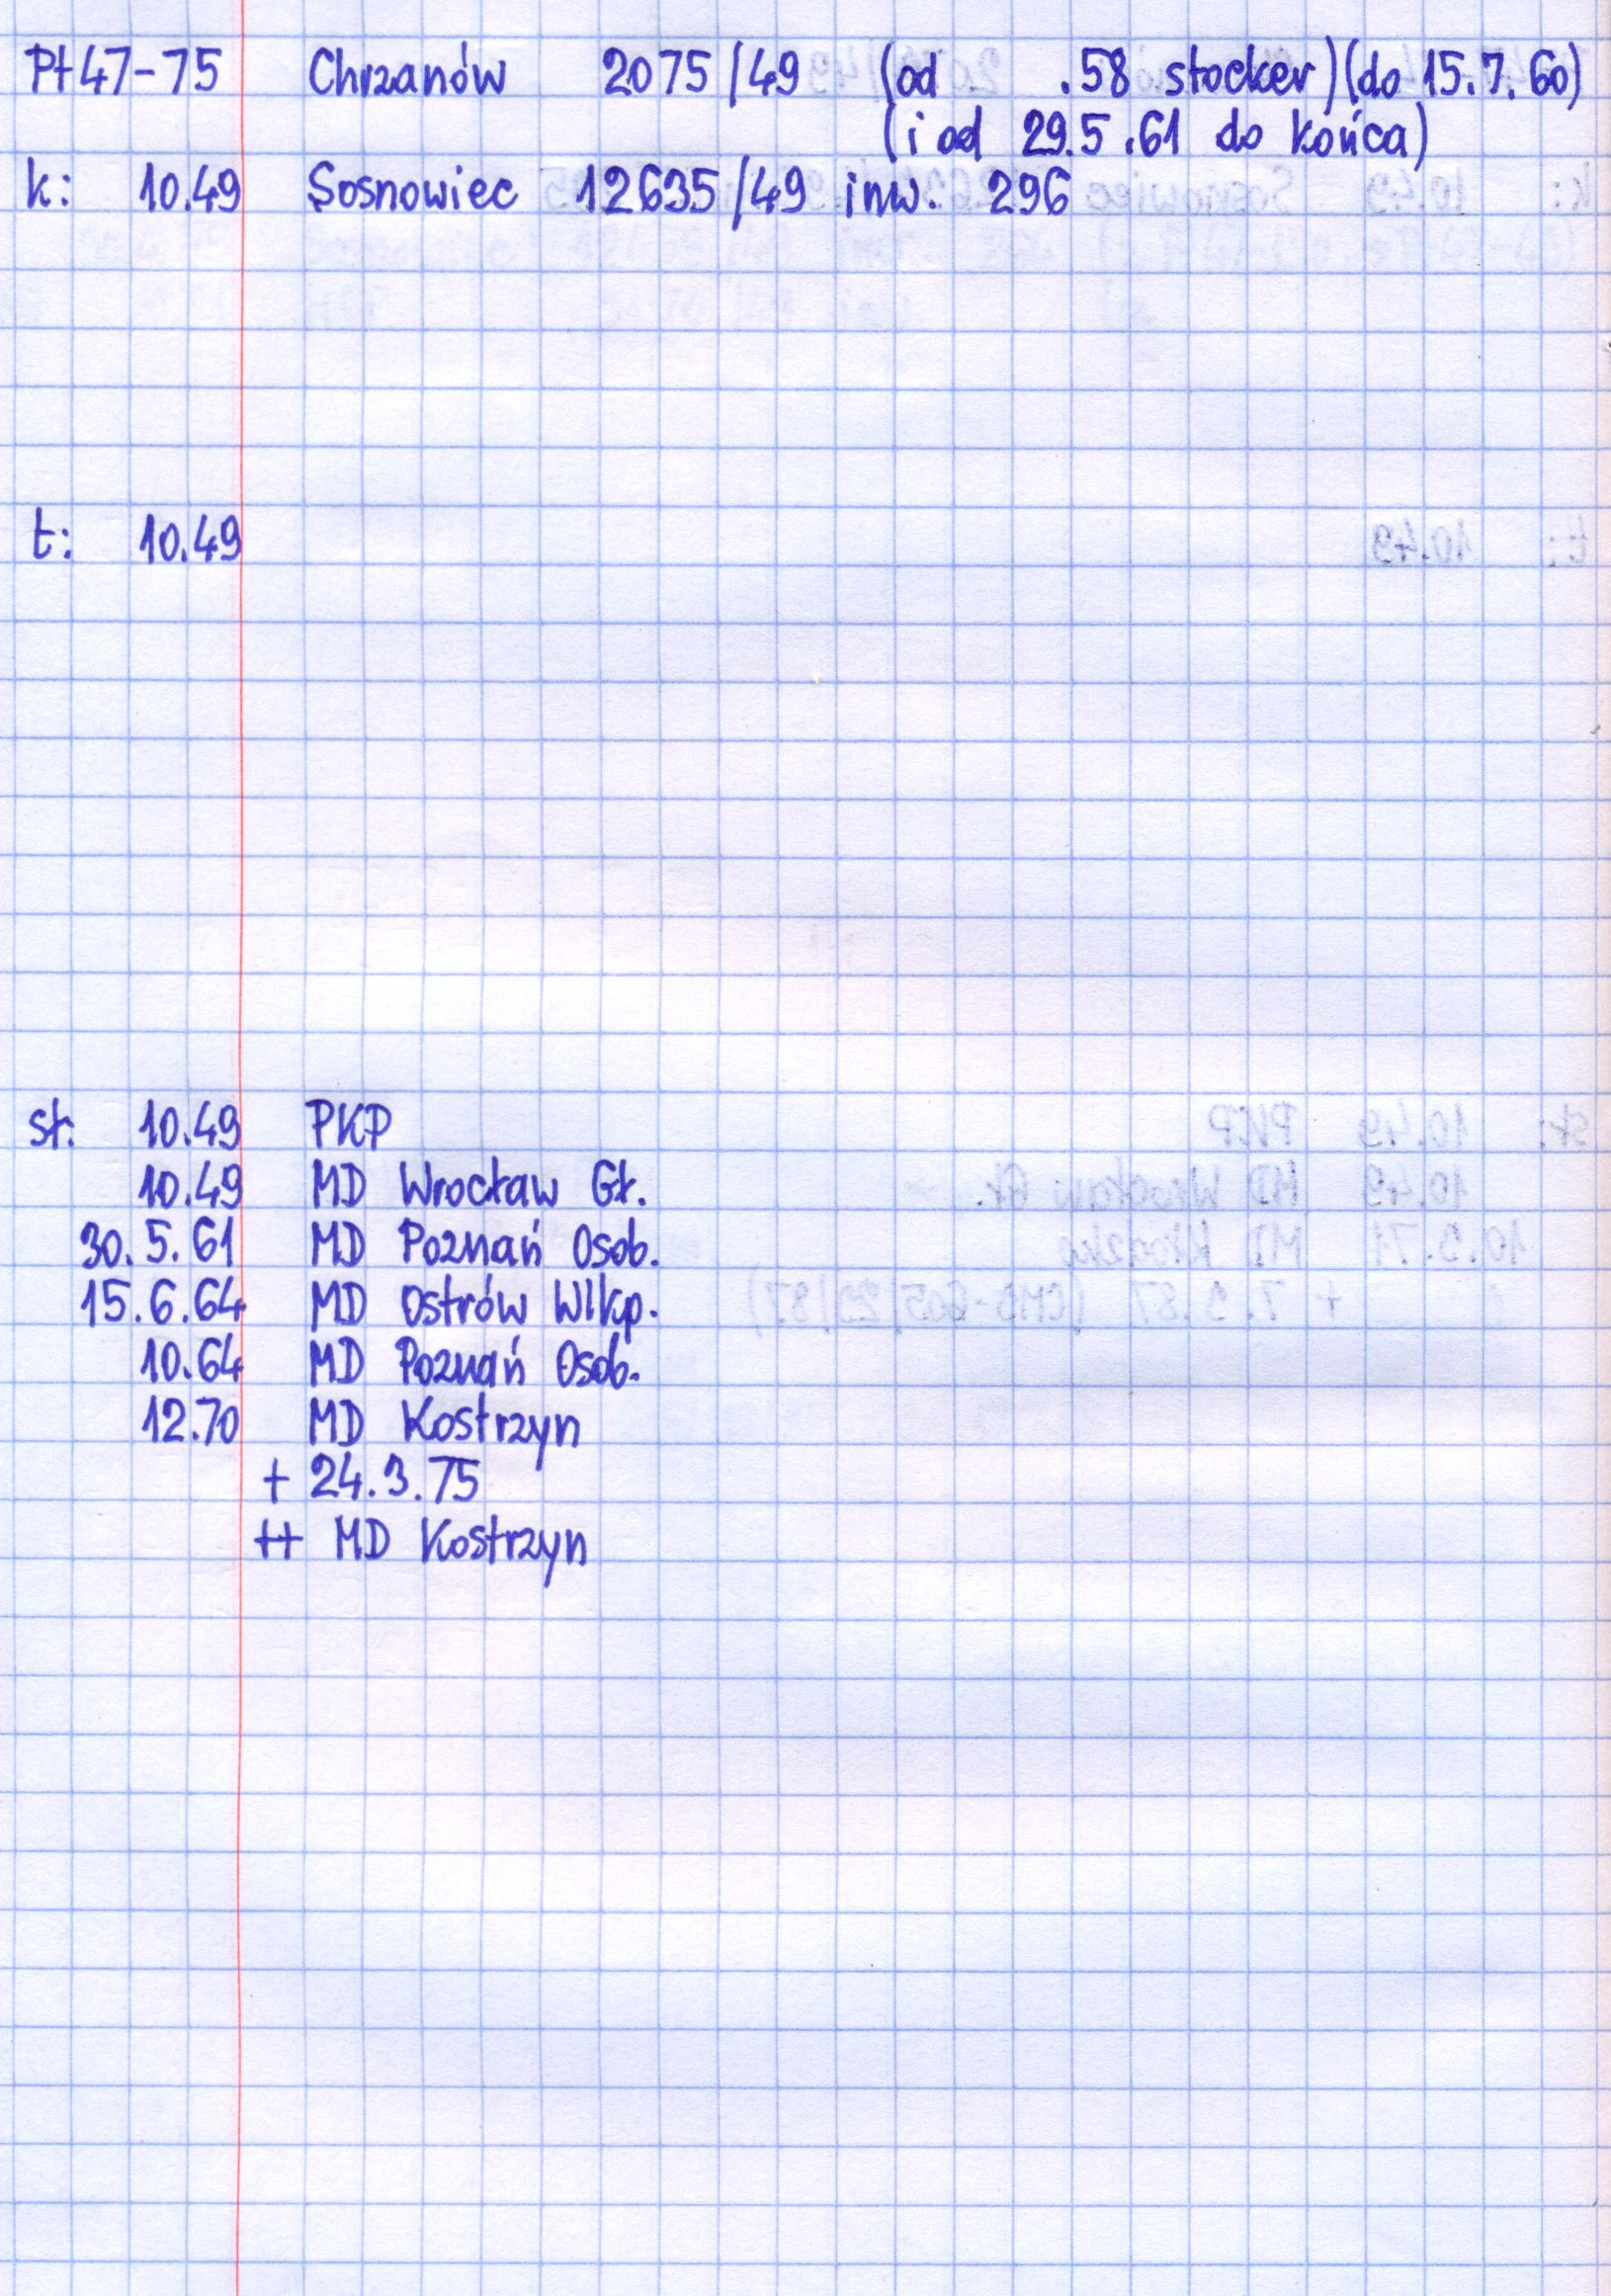 Pt47-75 Chrzanów 2075/49 (od .58 stocker)(do 15.7.60)
(i od 29.5.61 do końca)
k: 10.49 Sosnowiec 12635/49 inw. 296
t: 10.49
st: 10.49 PKP
10.49 MD Wrocław Gł.
30.5.61 MD Poznań Osob.
15.6.64 MD Ostrów Wlkp.
10.64 MD Poznań Osob.
12.70 MD Kostrzyn
+ 24.3.75
++ MD Kostrzyn